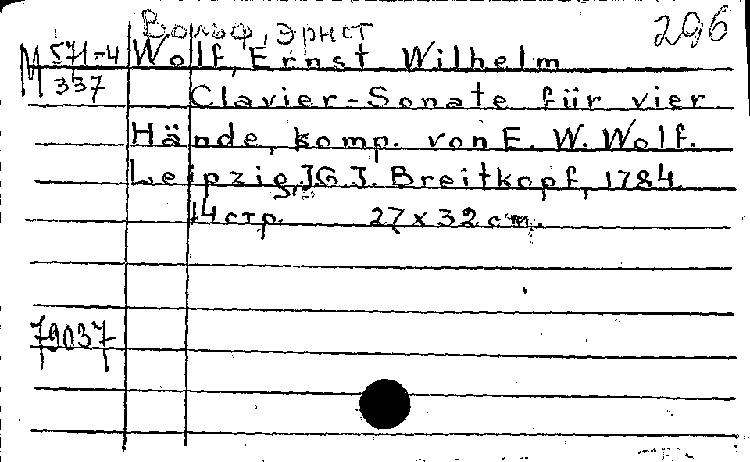 Вольф, Эрнст 296
М 571-4 Wolf, Ernst Wilhelm
337
Clavier-Sonate für vier
Hände, komp. von E. W. Wolf.
Leipzig, J.G.J. Breitkopf, 1784.
14 стр. 27 x 32 cm.
79037